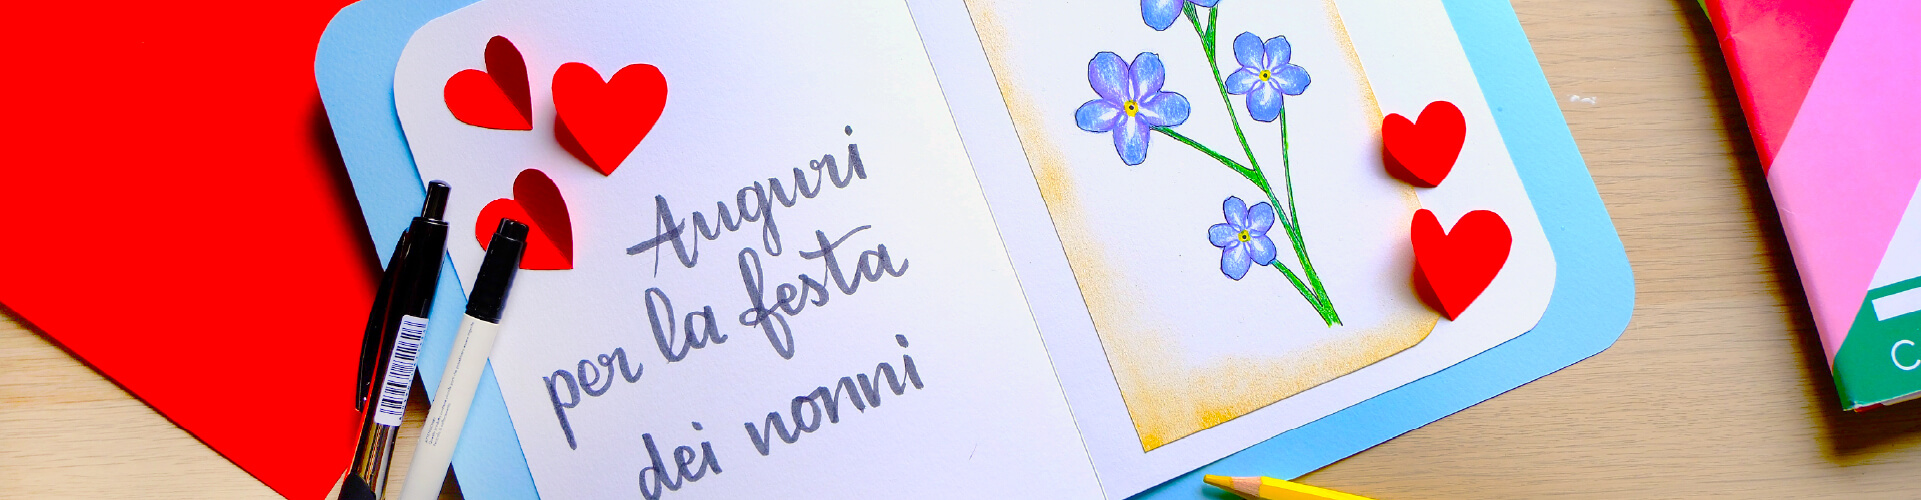 Auguri
per la festa
dei nonni
C